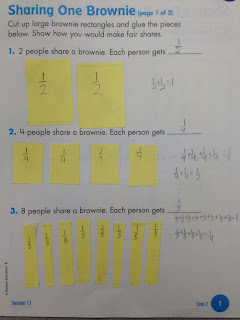 Sharing One Brownie (page 1 of 2)
Cut up large brownie rectangles and glue the pieces
below. Show how you would make fair shares.
1. 2 people share a brownie. Each person gets 1/2
1/2 1/2 1/2+1/2=1
2. 4 people share a brownie. Each person gets 1/4
1/4 1/4 1/4 1/4 1/4+1/4+1/4+1/4=1
1/4+1/4=1/2
3. 8 people share a brownie. Each person gets 1/8
1/8 1/8 1/8 1/8 1/8 1/8 1/8 1/8 1/8+1/8+1/8+1/8+1/8+1/8+1/8+1/8=1
Session 1.1 Unit 7 1